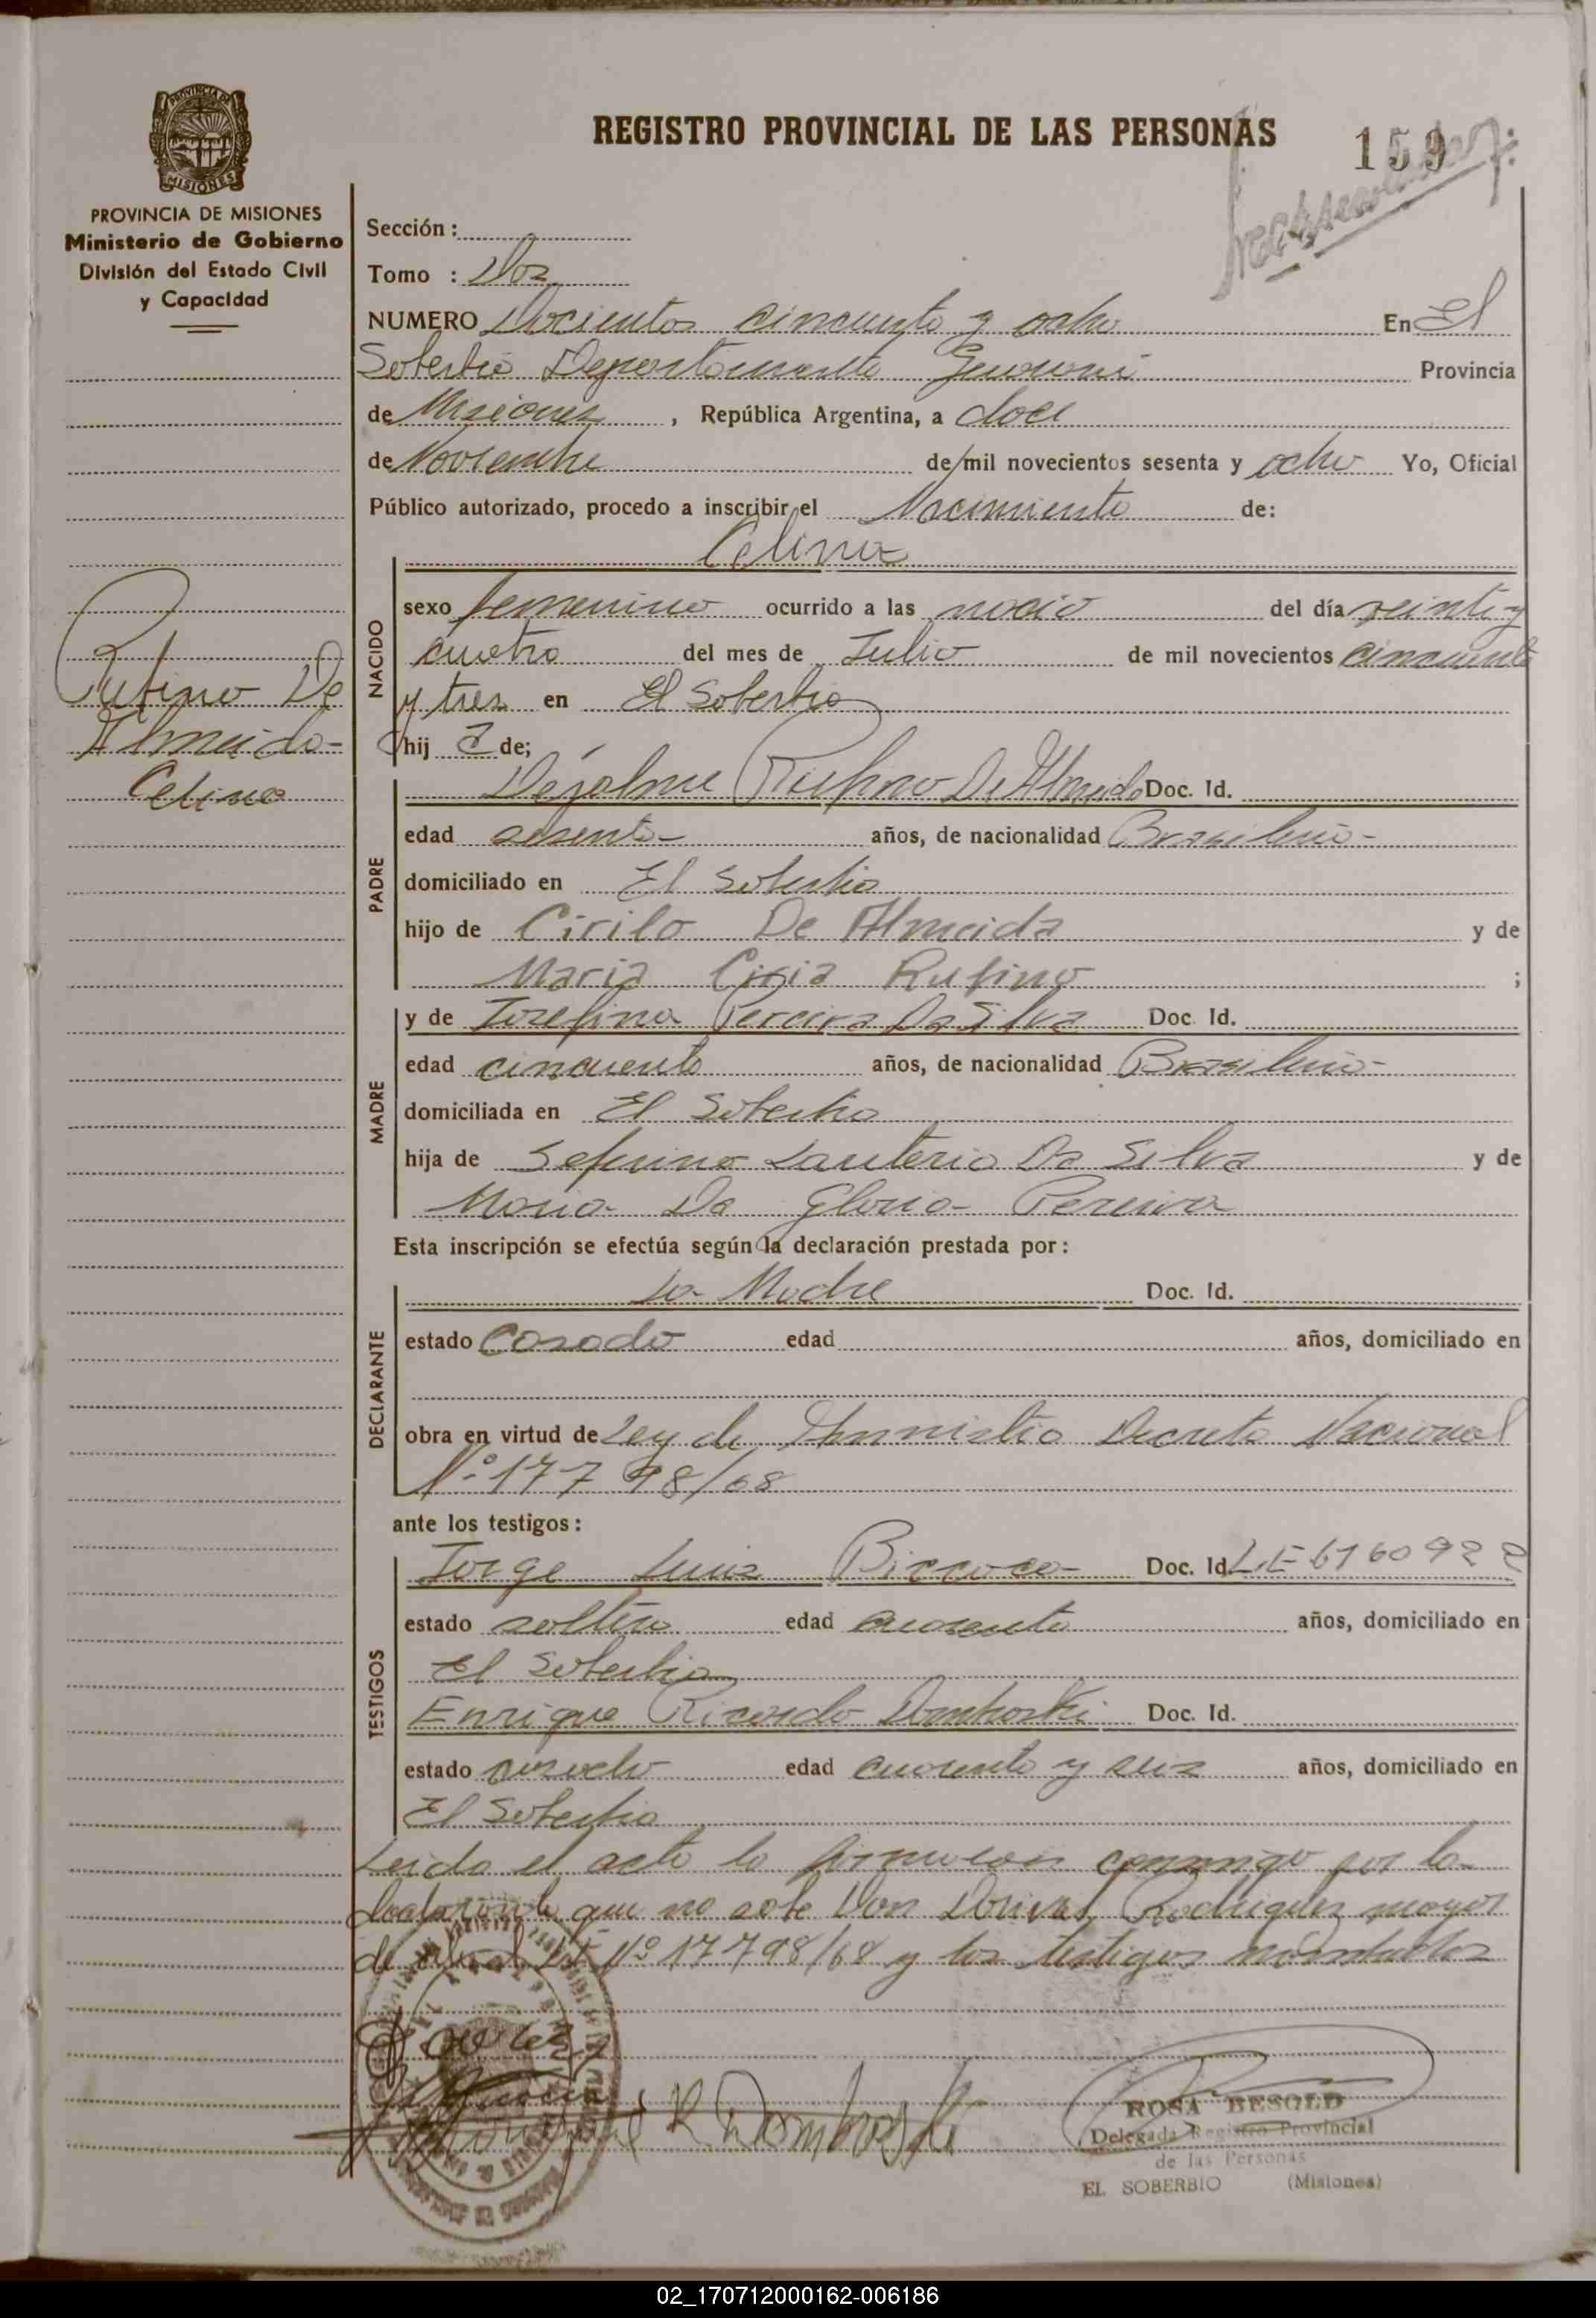 REGISTRO PROVINCIAL DE LAS PERSONAS
159
PROVINCIA DE MISIONES
Ministerio de Gobierno
División del Estado Civil
y Capacidad
Sección :
Tomo : Dos
NUMERO Docientos cincuenta y ocho En El
Soberbio Departamento Guarani Provincia
de Misiones , República Argentina, a doce
de Noviembre de mil novecientos sesenta y ocho Yo, Oficial
Público autorizado, procedo a inscribir el Nacimiento de:
Celina
NACIDO
sexo femenino ocurrido a las del día veinti y
cuatro del mes de Julio de mil novecientos cincuenta
y tres en El Soberbio
hij a de;
Rufino De
Almeida
Celina
PADRE
Dejalma Rufino De Almeida Doc. Id.
edad sesenta años, de nacionalidad Brasileña
domiciliado en El Soberbio
hijo de Cirilo De Almeida y de
Maria Rufino ;
MADRE
y de Josefina Pereira Da Silva Doc. Id.
edad cincuenta años, de nacionalidad Brasileña
domiciliada en El Soberbio
hija de Da Silva y de
Maria Da Gloria Pereira
Esta inscripción se efectúa según la declaración prestada por :
DECLARANTE
La Madre Doc. Id.
estado Casada edad años, domiciliado en
obra en virtud de Ley de Amnistia Decreto Nacional
N° 17798/68
ante los testigos :
TESTIGOS
Jorge Luis Doc. Id. L.E 6160922
estado soltero edad cuarenta años, domiciliado en
El Soberbio
Enrique Ricardo Domboski Doc. Id.
estado casado edad cuarenta y seis años, domiciliado en
El Soberbio
Leida el acta la firmaron conmigo por la
declarante que no sabe Don Rodriguez mayor
de edad N° 17798/68 y los testigos nombrados
ROSA BESOLD
Delegada Registro Provincial
de las Personas
EL SOBERBIO (Misiones)
02_170712000162-006186